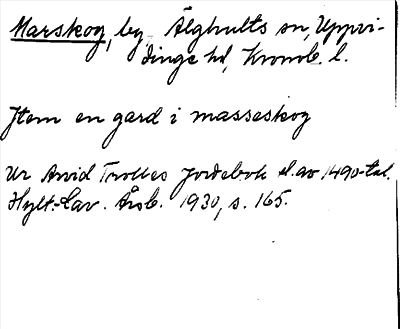 Marskog, by, Älghults sn, Uppvi-
dinge hd, Kronob. l.
Jtem en gard i masseskog
Ur Arvid Trolles jordebok sl. av 1490-tal.
Hylt.-Cav. Årsb. 1930, s. 165.